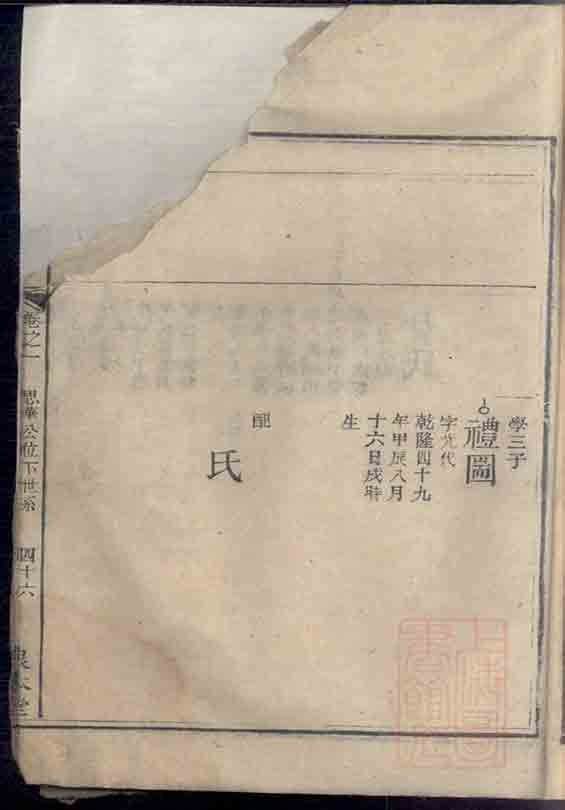 學三子
禮圖
字尤代
乾隆四十九
年甲辰八月
十六日戌時
生
配
氏
卷之一
思華公位下世系
四十六
本堂